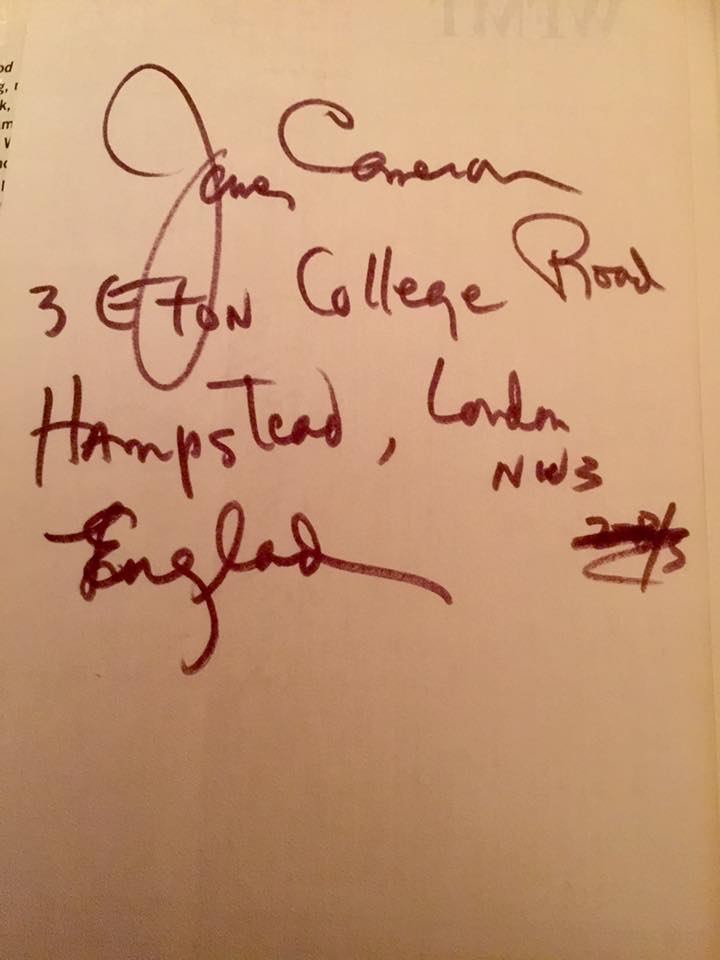 James Cameron
3 Eton College Road
Hampstead, London
NW3
Englad